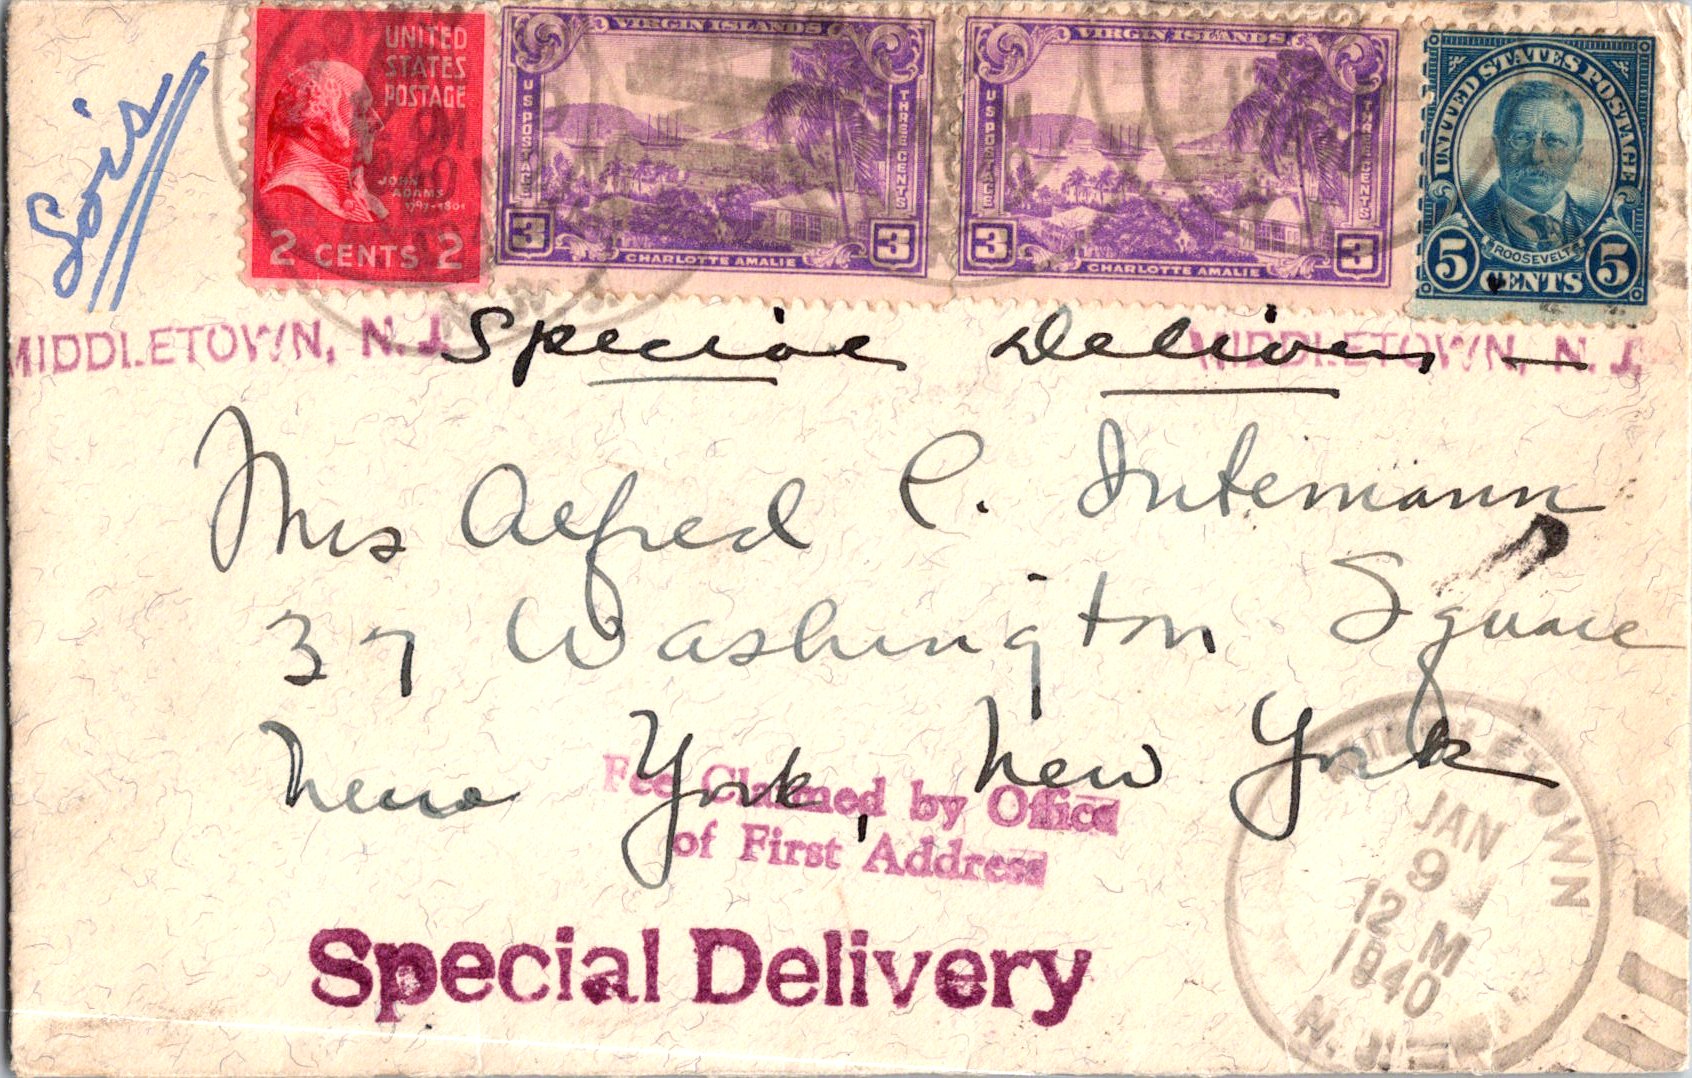 Lois
UNITED
STATES
POSTAGE
JOHN
ADAMS
1797-1801
2 CENTS 2
VIRGIN ISLANDS
U S POSTAGE
THREE CENTS
3 3
CHARLOTTE AMALIE
VIRGIN ISLANDS
U S POSTAGE
THREE CENTS
3 3
CHARLOTTE AMALIE
UNITED STATES POSTAGE
ROOSEVELT
5 CENTS 5
MIDDLETOWN, N. J.
MIDDLETOWN, N. J.
Special Delivery
Mrs Alfred C. Intemann
37 Washington Square
New York, New York
Fee Claimed by Office
of First Address
Special Delivery
MIDDLETOWN
JAN
9
12 M
1940
N. J.